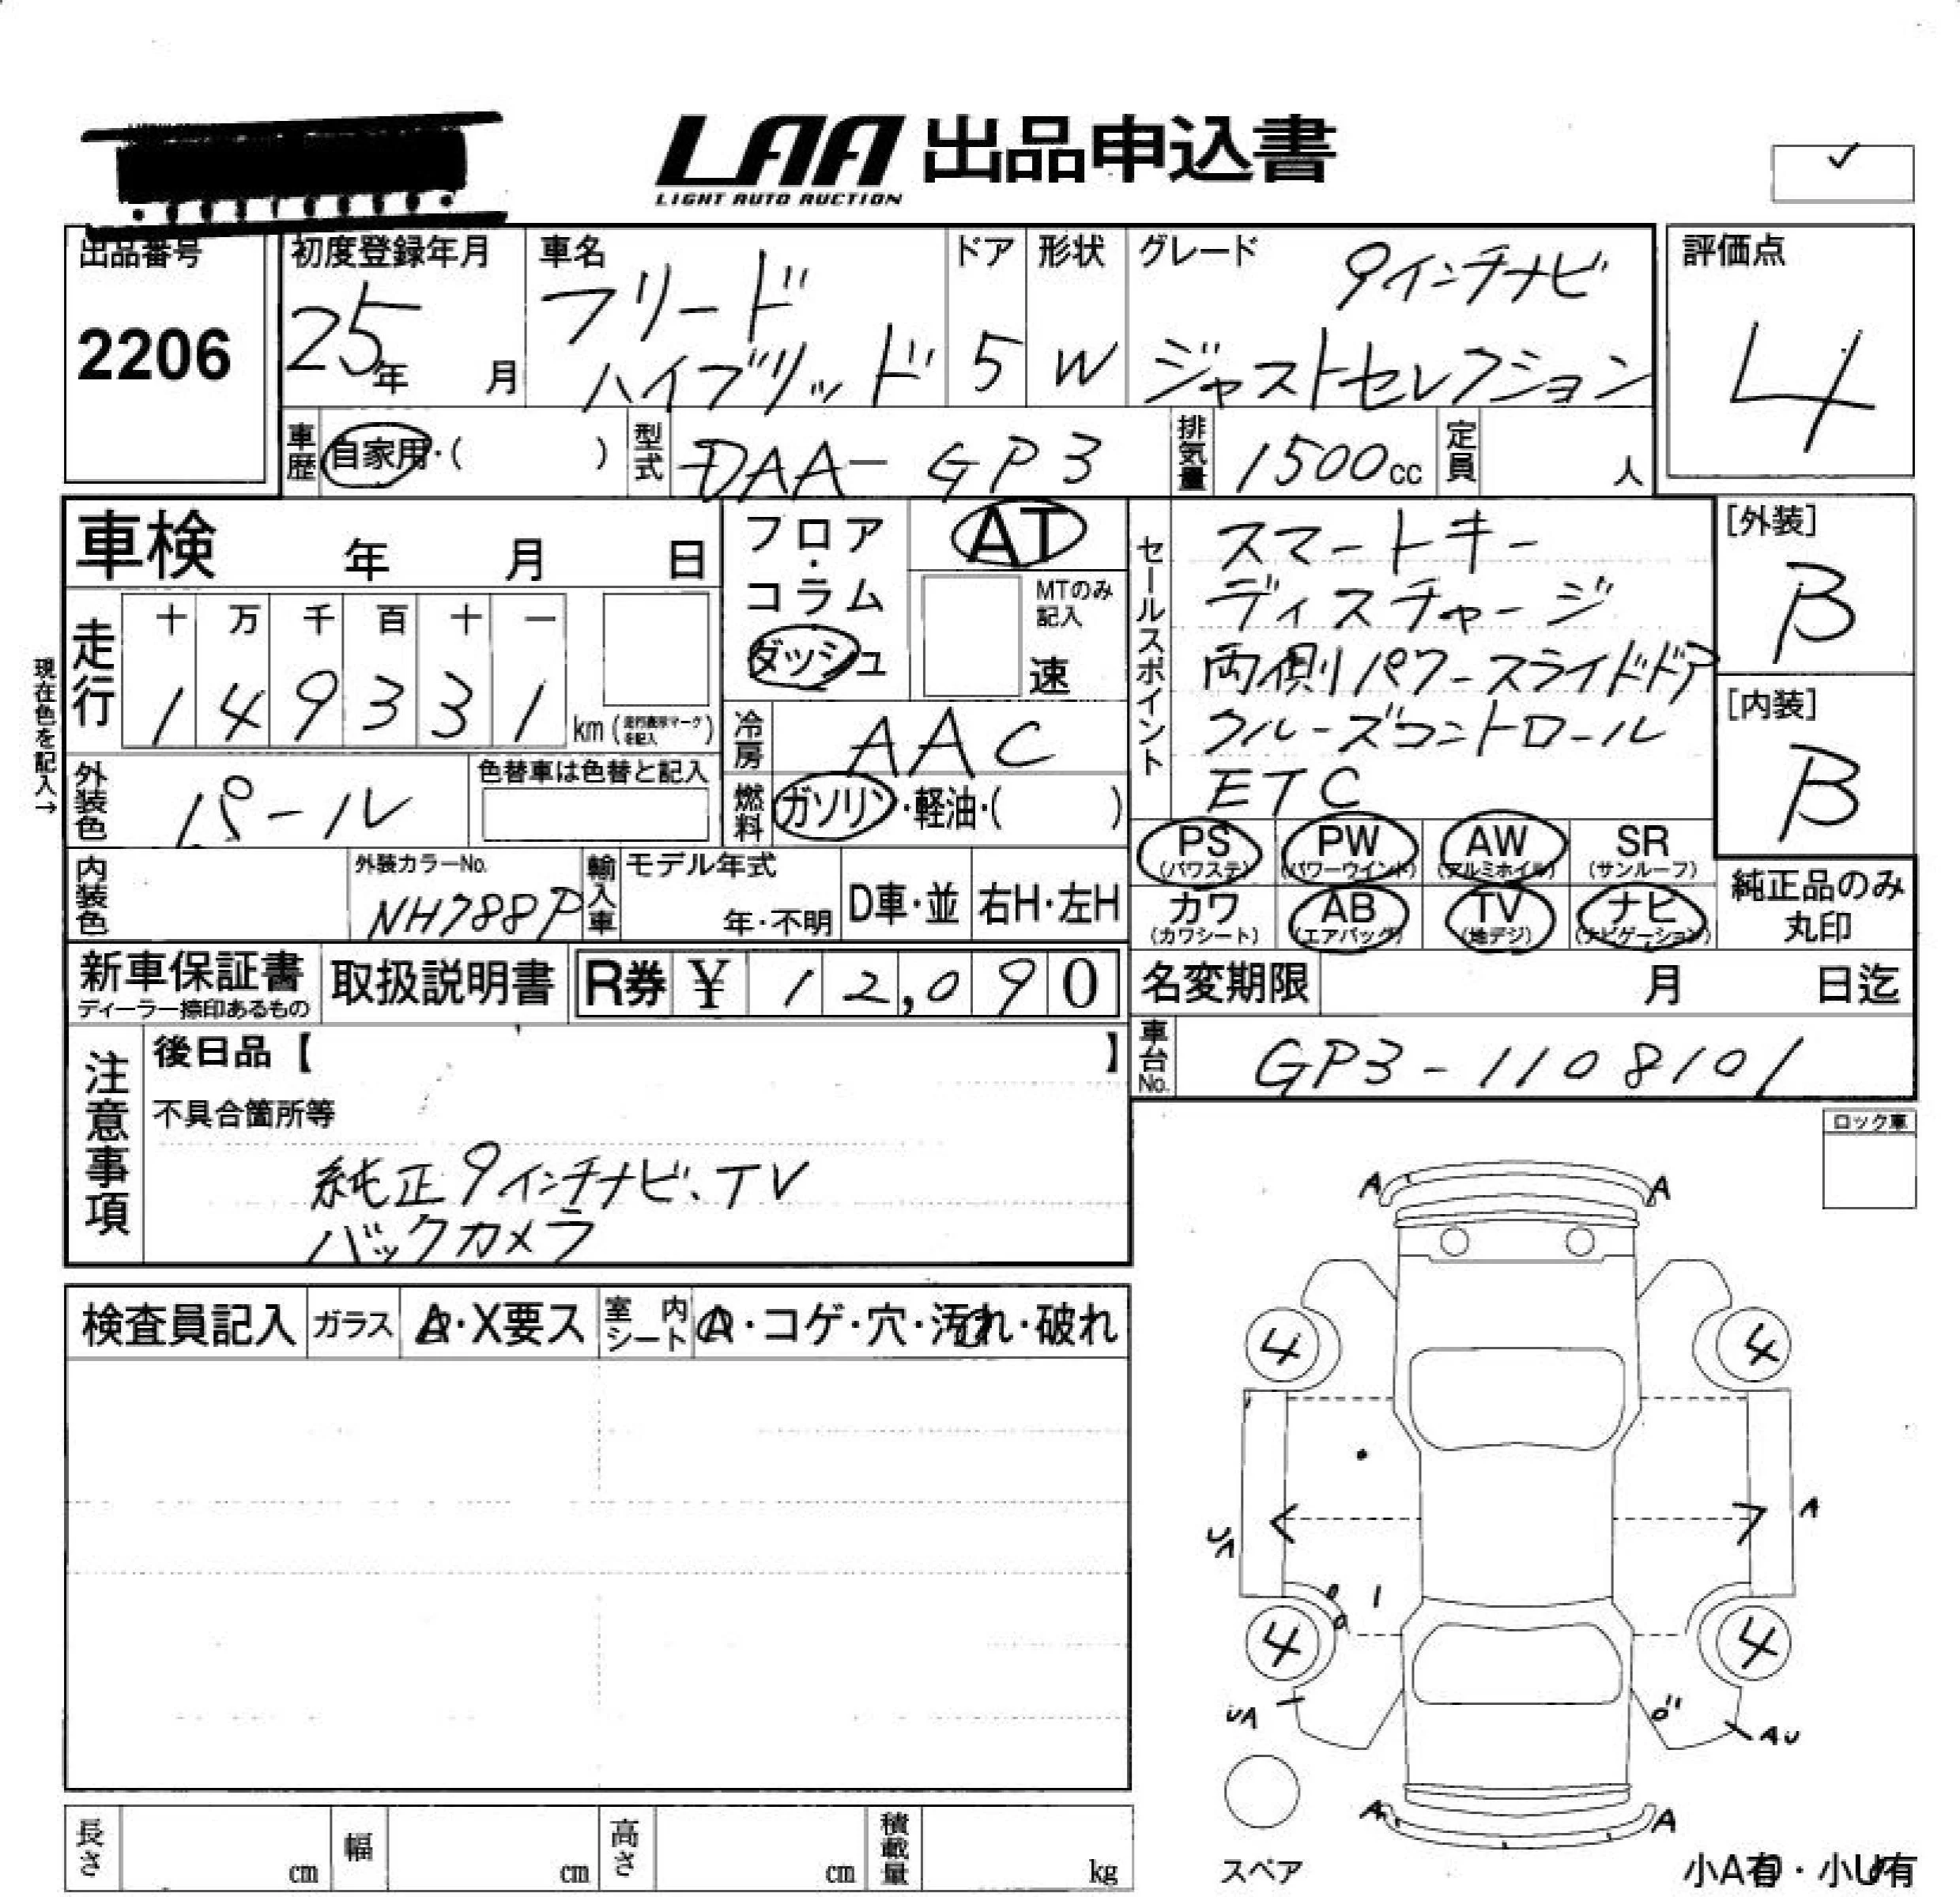 LAA 出品申込書
LIGHT AUTO AUCTION
✓
出品番号
2206
初度登録年月
25年 月
車名
フリード
ハイブリッド
ドア
5
形状
W
グレード
9インチナビ
ジャストセレクション
評価点
4
車歴 自家用・( )
型式 DAA-GP3
排気量 1500cc
定員 人
車検 年 月 日
フロア・
コラム
ダッシュ
AT
MTのみ
記入
速
セールスポイント
スマートキー
ディスチャージ
両側パワースライドドア
クルーズコントロール
ETC
[外装]
B
[内装]
B
現在色を記入→
走行
十 万 千 百 十 一
1 4 9 3 3 1
km (走行表示マークを記入)
冷房 AAC
外装色 パール
色替車は色替と記入
燃料 ガソリン・軽油・( )
PS (パワステ)
PW (パワーウインド)
AW (アルミホイル)
SR (サンルーフ)
カワ (カワシート)
AB (エアバッグ)
TV (地デジ)
ナビ (ナビゲーション)
純正品のみ
丸印
内装色
外装カラーNo.
NH788P
輸入車
モデル年式
年・不明
D車・並
右H・左H
新車保証書
ディーラー捺印あるもの
取扱説明書
R券 ¥ 12,090
名変期限 月 日迄
車台No. GP3-1108101
注意事項
後日品【 】
不具合箇所等
純正9インチナビ、TV
バックカメラ
ロック車
検査員記入
ガラス
A・X要ス
室内
シート
A・コゲ・穴・汚れ・破れ
A A
4 4
A
UA
4 4
UA
AU
A A
スペア
小A有・小U有
長さ cm
幅 cm
高さ cm
積載量 kg